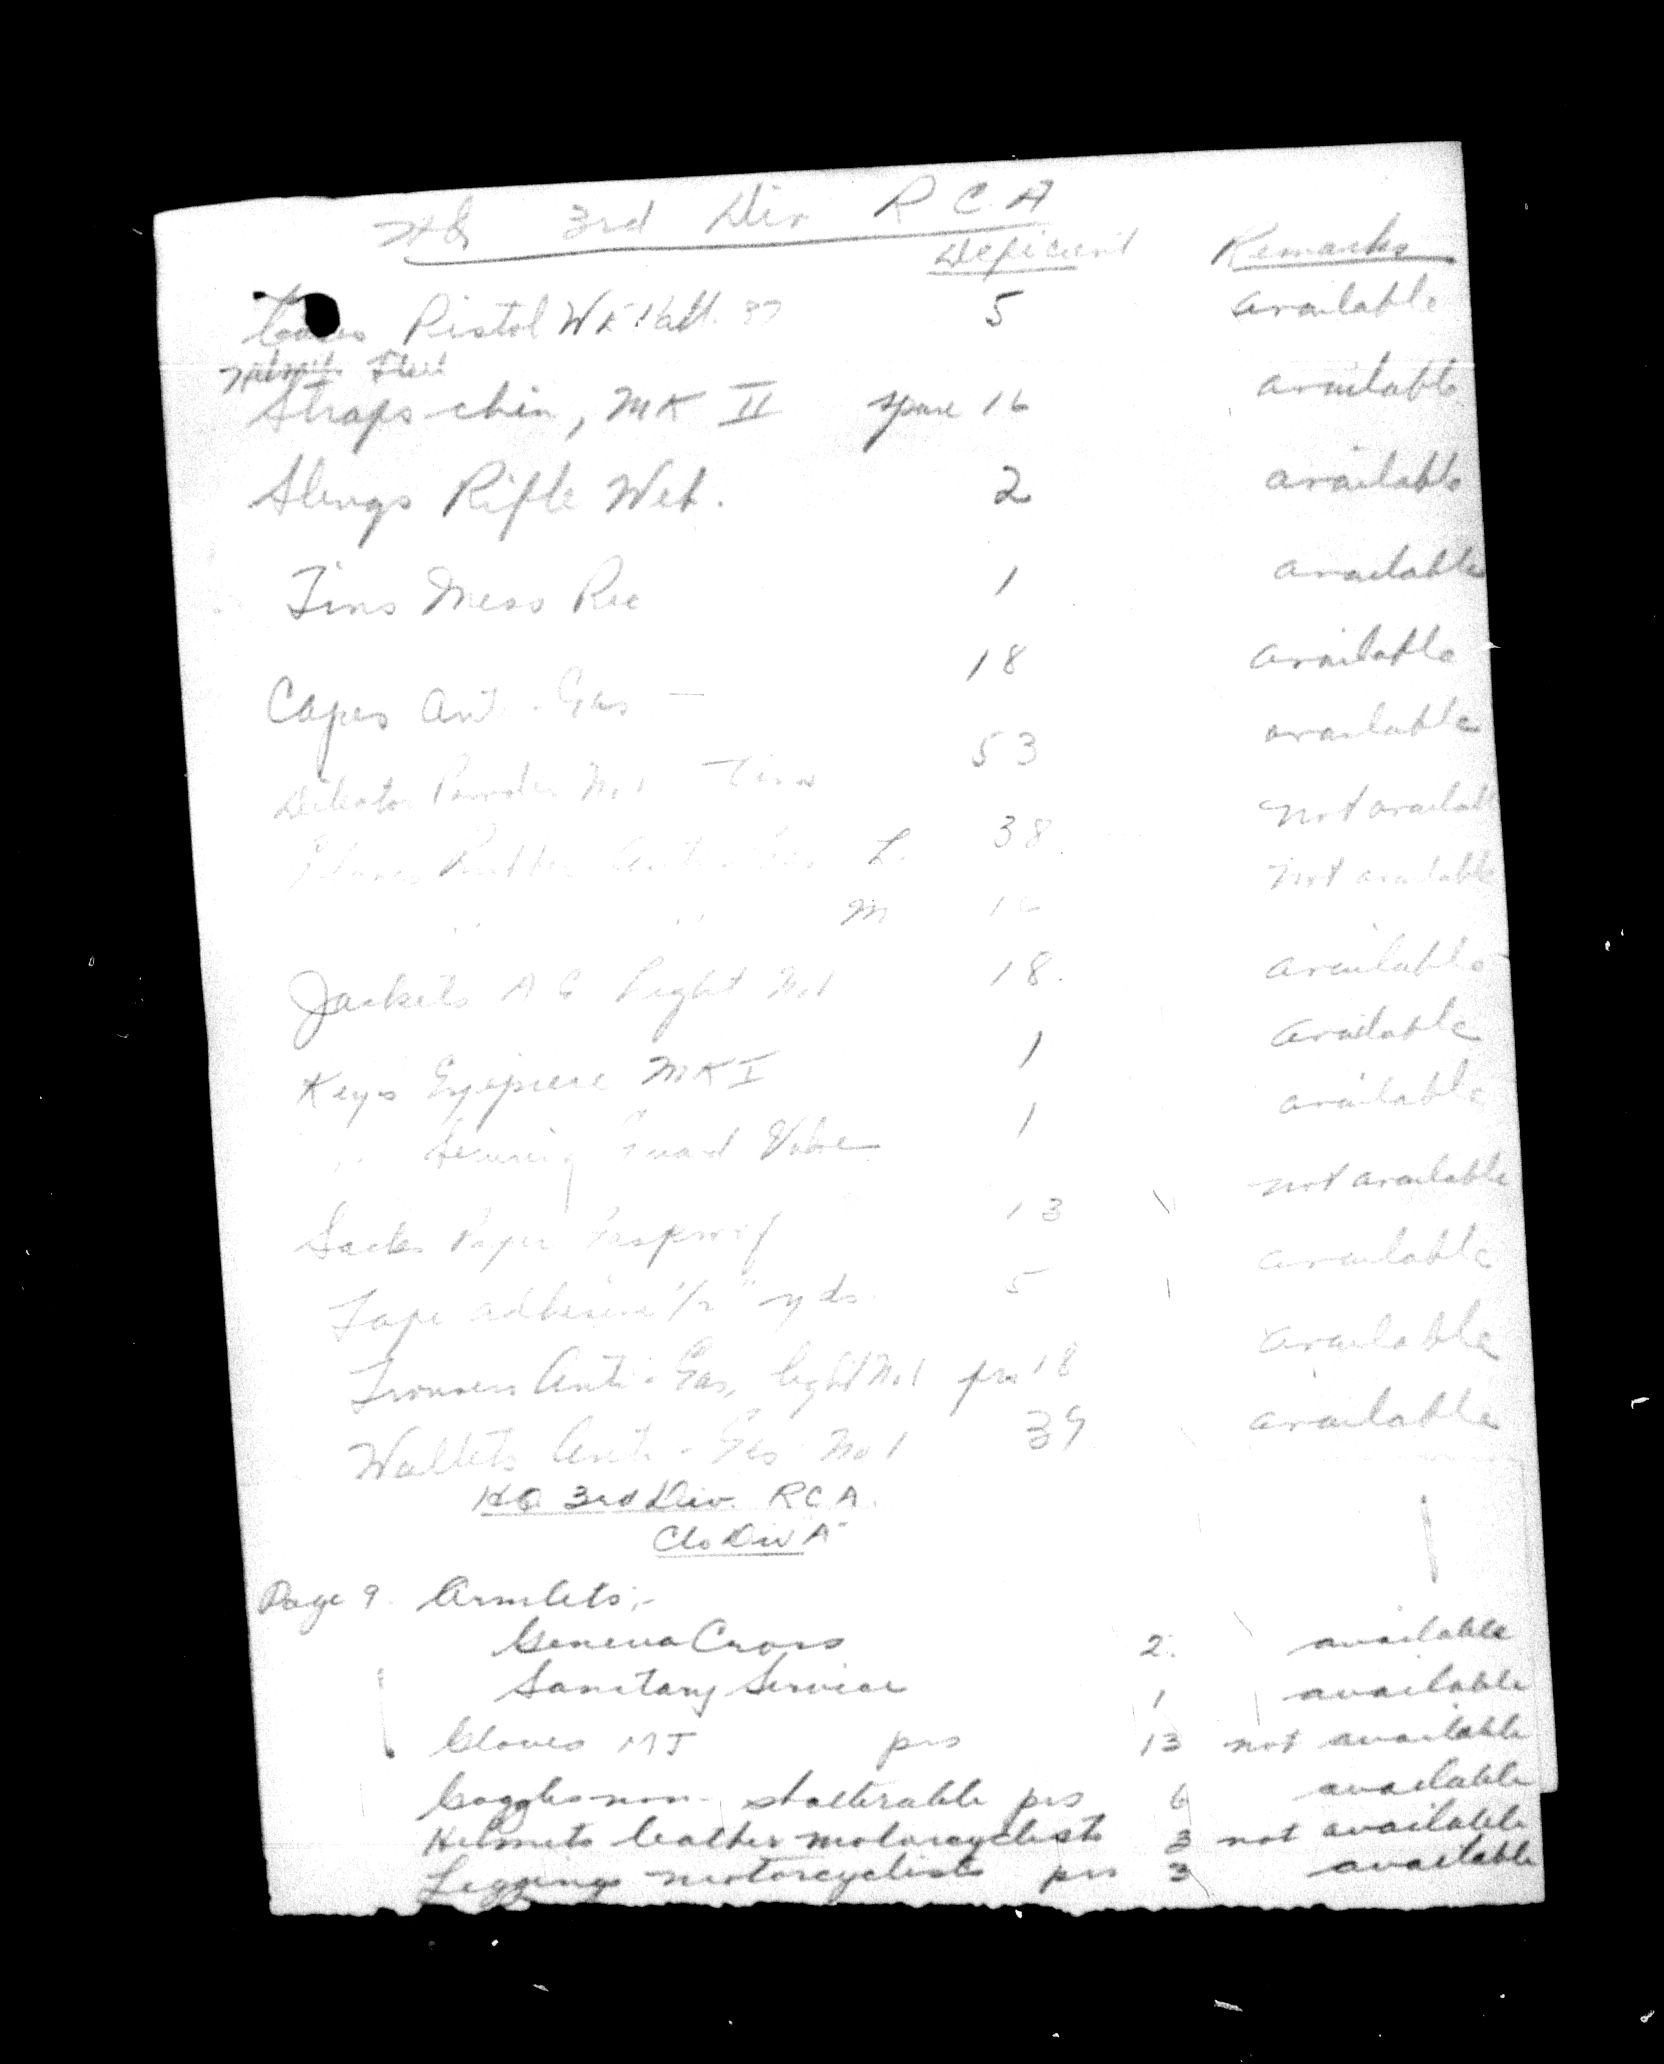 HQ 3rd Div RCA
Deficient Remarks
Cases Pistol Web Patt. 37 5 available
Helmets Steel
Straps chin, MK II spare 16 available
Slings Rifle Web. 2 available
Tins Mess Rec 1 available
Capes Anti-Gas — 18 available
Detector Powder No 1 Tins 53 available
Gloves Rubber Anti-Gas L. 38 not available
" " M 16 not available
Jackets A G Light No 1 18. available
Keys Eyepiece MK I 1 available
" Securing Guard Valve 1 available
Sacks Paper Gasproof 13 not available
Tape adhesive 1/2" yds. 5 available
Trousers Anti-Gas, light No 1 prs 18 available
Wallets Anti-Gas No 1 39 available
HQ 3rd Div. RCA.
Clo Div A
Page 9. Armlets:-
Geneva Cross 2. available
Sanitary Service 1 available
Gloves MT prs 13 not available
Goggles non-shatterable prs 6 available
Helmets leather motorcyclists 3 not available
Leggings motorcyclists prs 3 available